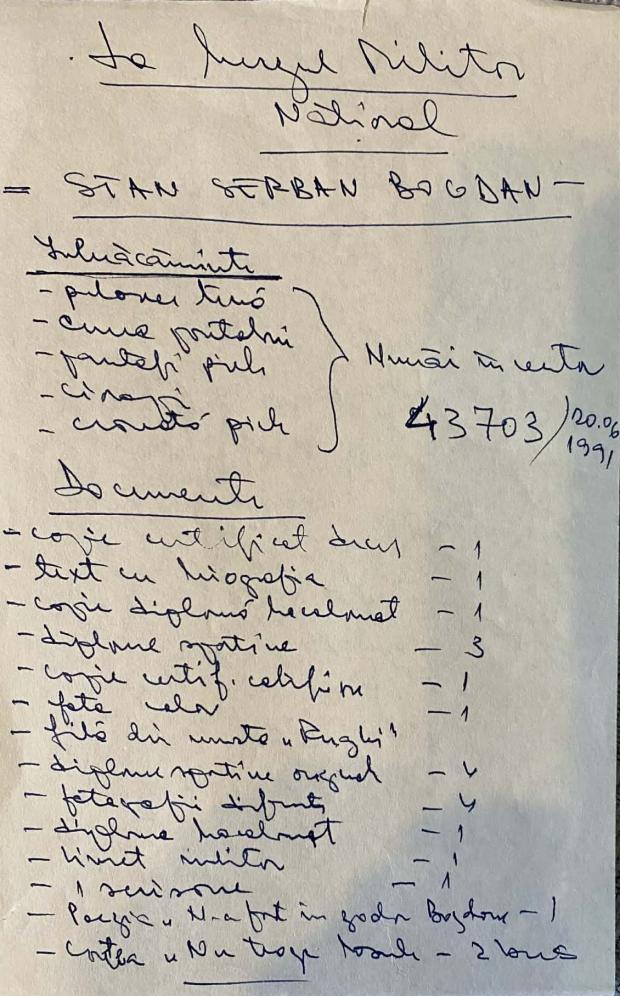 La Muzeul Militar
Național
= STAN SERBAN BOGDAN -
Îmbrăcăminte
- pulover lână
- curea pantaloni
- pantofi piele
- ciorapi
- cravată piele
Număr inventar
43703/20.06
1991
Documente
- copie certificat deces - 1
- text cu biografia - 1
- copie diplomă bacalaureat - 1
- diplome sportive - 3
- copie certif. calificare - 1
- foto color - 1
- filă din revista „Rugby"
- diplome sportive original - 4
- fotografii diferite - 4
- diploma bacalaureat - 1
- livret militar - 1
- 1 scrisoare - 1
- Poezia „N-a fost în zadar Bogdane - 1
- Cartea „Nu trageți - 2 buc